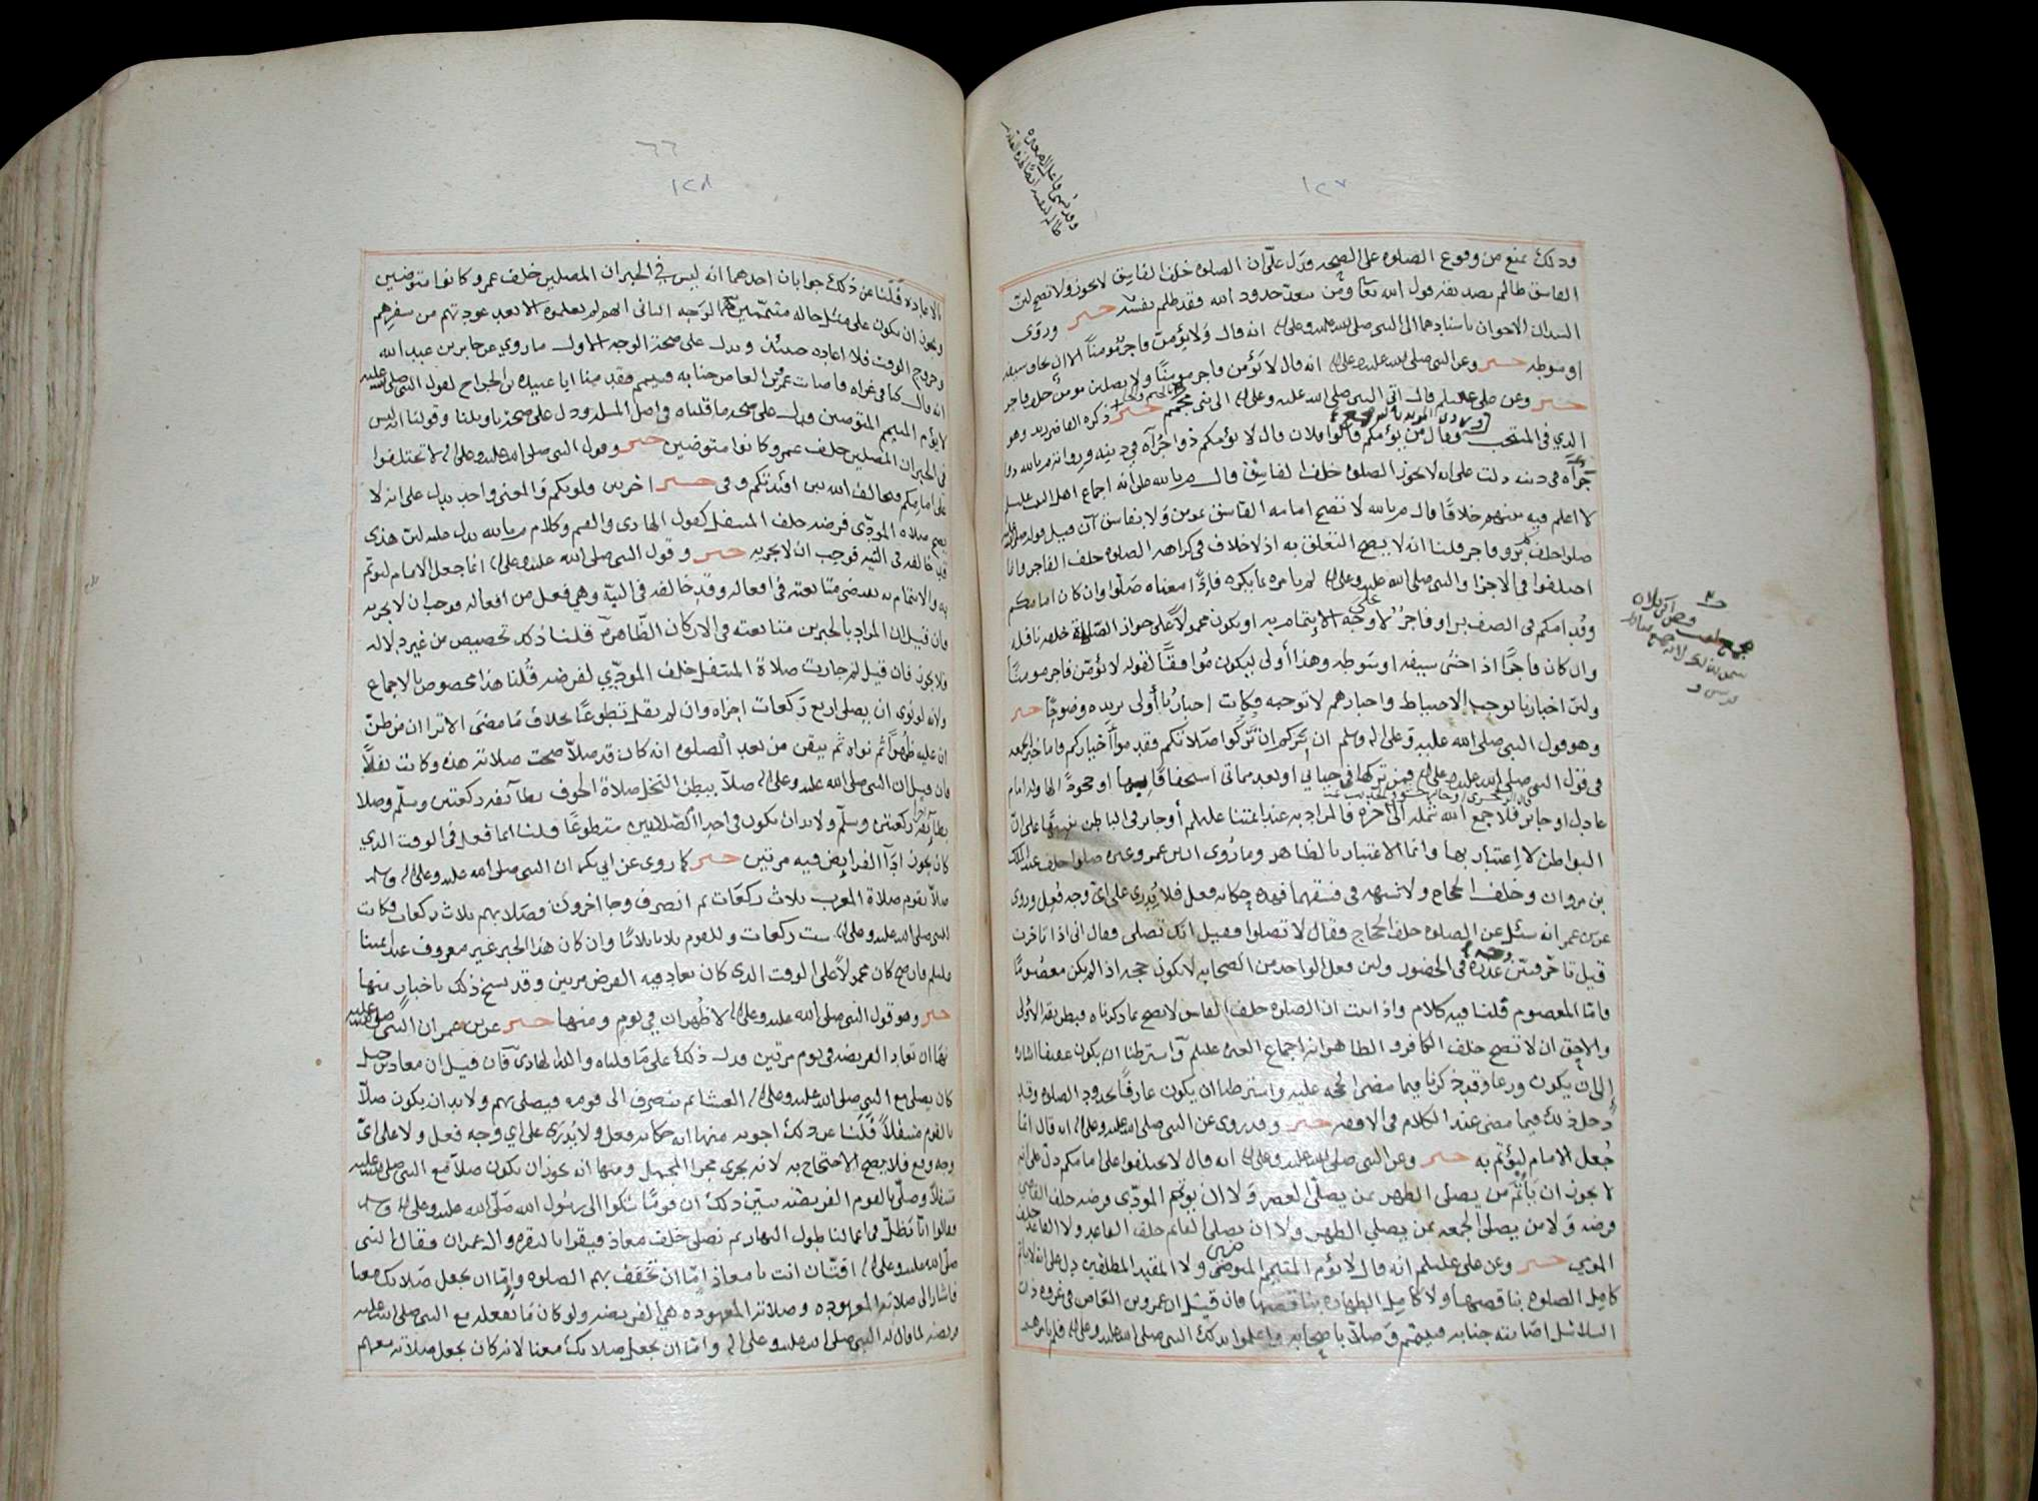 ١٢٧
وذلك يمنع من وقوع الصلوه على الصحه ودل على ان الصلوه خلف الفاسق لا يجوز ولا تصح لان
الفاسق ظالم يصدقه قول الله تعا ومن يتعد حدود الله فقد ظلم نفسه خبر وروى
السيدان الاخوان باسنادهما الى النبى صلى الله عليه وعلى انه قال ولا يؤمن فاجر مؤمناً الا ان يخاف سيفه
او سوطه خبر وعن النبى صلى الله عليه وعلى انه قال لا يؤمن فاجر مومنًا ولا يصلين مومن خلف فاجر
خبر وعن على علىلم قال اتى النبى صلى الله عليه وعلى الى بنى مجمم خبر ذكره القاضى زيد وهو
الذي فى المنتخب وقال من يؤمكم قالوا فلان قال لا يؤمكم ذو اجرآه في دينه
جرآه فى دينه دلت على انه لا تجوز الصلوه خلف الفاسق قال م بالله على انه اجماع اهل البيت عليلم
لا اعلم فيه بينهم خلافًا قال م بالله لا تصح امامه الفاسق بمومن ولا بفاسق فان قيل قوله
صلوا خلف كل بر وفاجر قلنا انه لا يصح التعلق به اذ لا خلاف فى كراهه الصلوه خلف الفاجر وانما
اختلفوا في الاجزا والنبى صلى الله عليه وعلى لم يامره بما يكره فاذًا معناه صلوا وان كان امامكم
وقدامكم فى الصف بر او فاجر لا على وجه الايتمام به او يكون محمولاً على جواز الصلاه خلفه نافله
وان كان فاجرًا اذا خشى سيفه او سوطه وهذا أولى ليكون مُوافقًا لقوله لا يؤمن فاجر مومنًا
ولان اخبارنا توجب الاحتياط واخبارهم لا توجبه فكانت اخبارُنا أولى يزيده وضوحًا خبر
وهو قول النبى صلى الله عليه وعلى اله وسلم ان سركم ان تزكوا صَلاتكم فقدموا أخياركم فاما خبر الجمعه
فى قول النبى صلى الله عليه وعلى فمن تركها في حياتي او بعد مماتى استخفافًا بها او جحودًا لها وله امام
عادل او جائر فلا جمع الله شمله الى آخره فالمراد به عند ائمتنا عليلم أو جائر فى الباطن تنبيهًا على ان
البواطن لا اعتبار بها وانما الاعتبار بالظاهر وما رُوى ان ابن عمر وغيره صلوا خلف عبد الملك
بن مروان وخلف الحجاج ولا شبهه فى فسقهما فهذه حكايه فعل فلا يُدرى على اى وجه فُعِل وروى
عن بن عمر انه سئل عن الصلوه خلف الحجاج فقال لا تصلوا فقيل انك تصلى فقال انى اذا تاخرت
قيل تاخر فبين عذره فى الحضور ولان فعل الواحد من الصحابه لا يكون حجه اذ لم يكن معصومًا
وامّا المعصوم قلنا فيه كلام واذا ثبت ان الصلوه خلف الفاسق لا تصح بما ذكرناه فبطريقه الاولى
والاحق ان لا تصح خلف الكافر والظاهر انه اجماع العتره عليلم واشترطنا ان يكون عفيفا اشاره
إلى ان يكون ورعا وقد ذكرنا فيما مضى الحجه عليه واشترطنا ان يكون عارفًا بحدود الصلوه وقد
دخل ذلك فيما مضى عند الكلام فى الافقه خبر وقد روى عن النبى صلى الله عليه وعلى انه قال انما
جُعل الامام ليؤتم به خبر وعن النبى صلى الله عليه وعلى انه قال لا تختلفوا على امامكم دل على انه
لا يجوز ان يَأتم من يصلى الظهر بمن يصلى العصر ولا ان يوتم المودى فرضه خلف القاضي
فرضه ولا من يصلى الجمعه بمن يصلى الظهر ولا ان يصلى القائم خلف القاعد ولا القاعد خلف
المومي خبر وعن على عليلم انه قال لا يؤم المتيمم المتوضين ولا المقيد المطلقين دل على انه لا ياتم
كامل الصلوه بناقصها ولا كامل الطهاره بناقصها فان قيل ان عمرو بن العاص فى غزوه ذات
السلاسل اصابته جنابه فتيمم وصلا باصحابه واعلموا بذلك النبى صلى الله عليه وعلى فلم يامرهم
١٢٨
٦٦
بالاعاده قُلنا عن ذلك جوابان احدهما انه ليس في الخبر ان المصلين خلف عمرو كانوا متوضين
ويجوز ان يكون على مثل حاله متيممين الوجه الثانى انهم لم يعلموه الا بعد عودتهم من سفرهم
وخروج الوقت فلا اعاده حينئذ ويدل على صحة الوجه الاول ما روي عن جابر بن عبد الله
انه قال كنا فى غزاه فاصابت عمرو بن العاص جنابه فتيمم فقدمنا ابا عبيده بن الجراح لقول النبى صلى الله عليه
لا يؤم المتيمم المتوضين ودل على صحه ما قلناه فى اصل المسله ودل على صحة تاويلنا وقولنا انه ليس
فى الخبر ان المصلين خلف عمرو كانوا متوضين خبر وقول النبى صلى الله عليه وعلى لا تختلفوا
على امامكم فيخالف الله بين افئدتكم وفى خبر اخر بين قلوبكم والمعنى واحد يدل على انه لا
يصح صلاه المودّى فرضه خلف المتنفل كقول الهادى والقسم وكلام م بالله يدل عليه لان هذى
قد خالفه فى النيه فوجب ان لا يجزيه خبر وقول النبى صلى الله عليه وعلى انما جعل الامام ليوتم
به والايتمام به يقتضى متابعته فى افعاله وقد خالفه فى النيّة وهي فعل من افعاله فوجب ان لا يجزيه
فان قيل ان المراد بالخبرين متابعته فى الاركان الظاهره قلنا ذلك تخصيص من غير دلاله
فلا يجوز فان قيل لم جازت صلاة المتنفل خلف المودّي لفرضه قُلنا هذا مخصوص بالاجماع
ولانه لو نوى ان يصلى اربع ركعات اجزاه وان لم يقل تطوعًا بخلاف مَا مضى الا ترا ان من ظنّ
ان عليه ظهرًا ثم نواه ثم تيقن من بعد الصلوه انه كان قد صلاّ صحت صلاته هذه وكانت نفلاً
فان قيل ان النبى صلى الله عليه وعلى صلاّ ببطن النخل صلاة الخوف بطآئفه ركعتين وسلّم وصلا
بطآئفه ركعتين وسلّم ولا بد ان تكون فى احدا الصّلاتين متطوعًا قلنا انما فعله فى الوقت الذي
كان يجوز ادآ الفرائض فيه مرتين خبر كما روى عن ابي بكره ان النبى صلى الله عليه وعلى وسلم
صلا بقوم صلاة المغرب ثلاث ركعات ثم انصرف وجا اخرون فصلا بهم ثلاث ركعات فكانت
للنبى صلى الله عليه وعلى ست ركعات وللقوم ثلاثا ثلاثا وان كان هذا الخبر غير معروف عند ائمتنا
عليلم فان صح كان محمولاً على الوقت الذى كان تعاد فيه الفرض مرتين وقد نسخ ذلك باخبار منها
خبر وهو قول النبى صلى الله عليه وعلى لا ظُهران في يوم ومنها خبر عن بن عمر ان النبى صلى الله عليه
نهى ان تعاد الفريضه فى يوم مرتين ودل ذلك على مَا قلناه والله الهادى فان قيل ان معاذ بن جبل
كان يصلى مع النبى صلى الله عليه وعلى العشا ثم ينصرف الى قومه فيصلى بهم ولا بد ان يكون صلاّ
بالقوم متنفلاً قلنا عن ذلك اجوبه منها انه حكايه فعل ولا يُدرَى على اي وجه فعل ولا على اىّ
وجه وقع فلا يصح الاحتجاج به لانه يجري مجرا المجمل ومنها انه يجوز ان يكون صلا مع النبى صلى الله عليه
متنفلاً وصلّى بالقوم الفريضه يبين ذلك ان قومًا شكوا الى رسول الله صلّى الله عليه وعلى وسلم
فقالوا انّا نظلّ فى اعمالنا طول النهار ثم نصلى خلف معاذ فيقرا بالبقره وال عمران فقال النبى
صلى الله عليه وعلى افتّان انت يا معاذ امّا ان تُخفِّف بهم الصلوه وإمّا ان تجعل صَلاتك معنا
فاشار الى صلاته المعهوده وصلاته المعهوده هي الفريضه ولو كان مَا يفعله مع النبى صلى الله عليه
فريضه لما قال له النبى صلى الله عليه وعلى وامّا ان تجعل صلاتك معنا لانه كان يجعل صلاته معهم